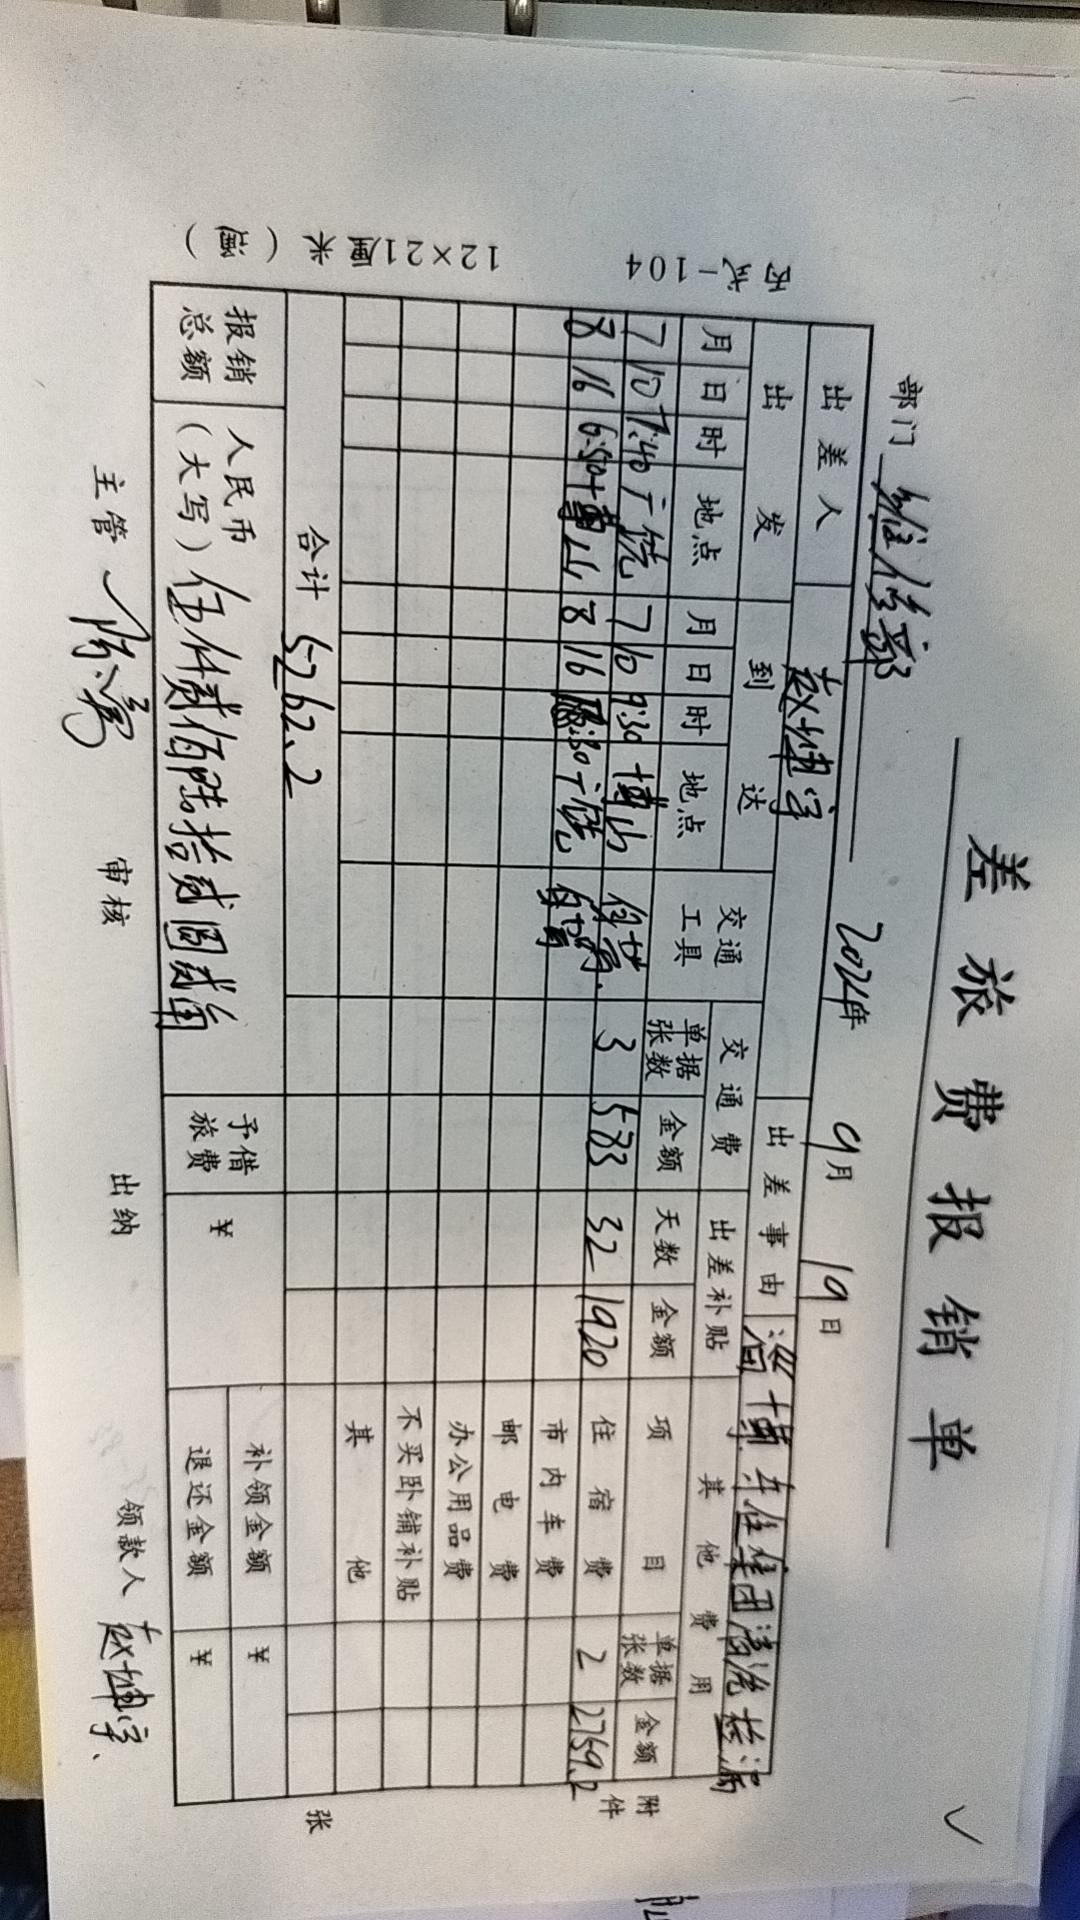 差旅费报销单
部门 维修部 2024年 9月 19日
出差人 赵坤宇 出差事由 淄博 集团清洗检漏
出发 到达 交通工具 交通费 出差补贴 其他费用
月 日 时 地点 月 日 时 地点 单据张数 金额 天数 金额 项目 单据张数 金额
7 10 7:40 广饶 7 10 9:30 博山 3 583 32 1920 住宿费 2 2759.2
8 16 6:50 博山 8 16 :30 广饶 市内车费
邮电费
办公用品费
不买卧铺补贴
其他
合计 5262.2
报销总额 人民币(大写) 伍仟贰佰陆拾贰圆贰角 予借旅费 ¥ 补领金额 ¥
退还金额 ¥
主管 审核 出纳 领款人 赵坤宇
附件 张
丙式-104 12×21厘米